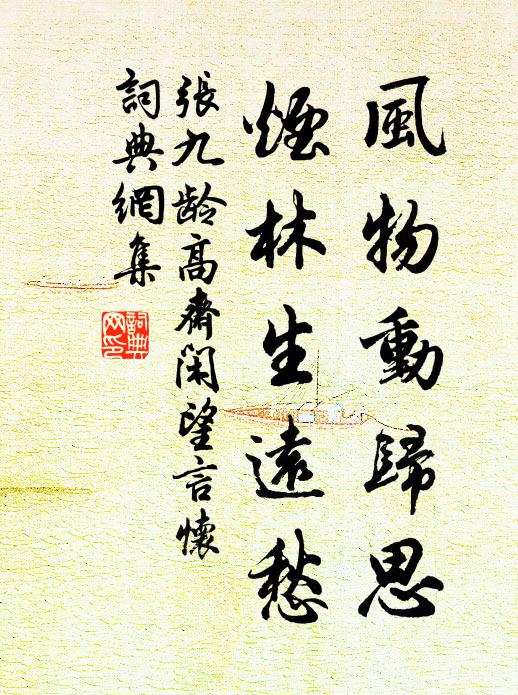 風物動歸思
煙林生遠愁
張九龄高齋閑望言懷
詞典網集
詞典網印